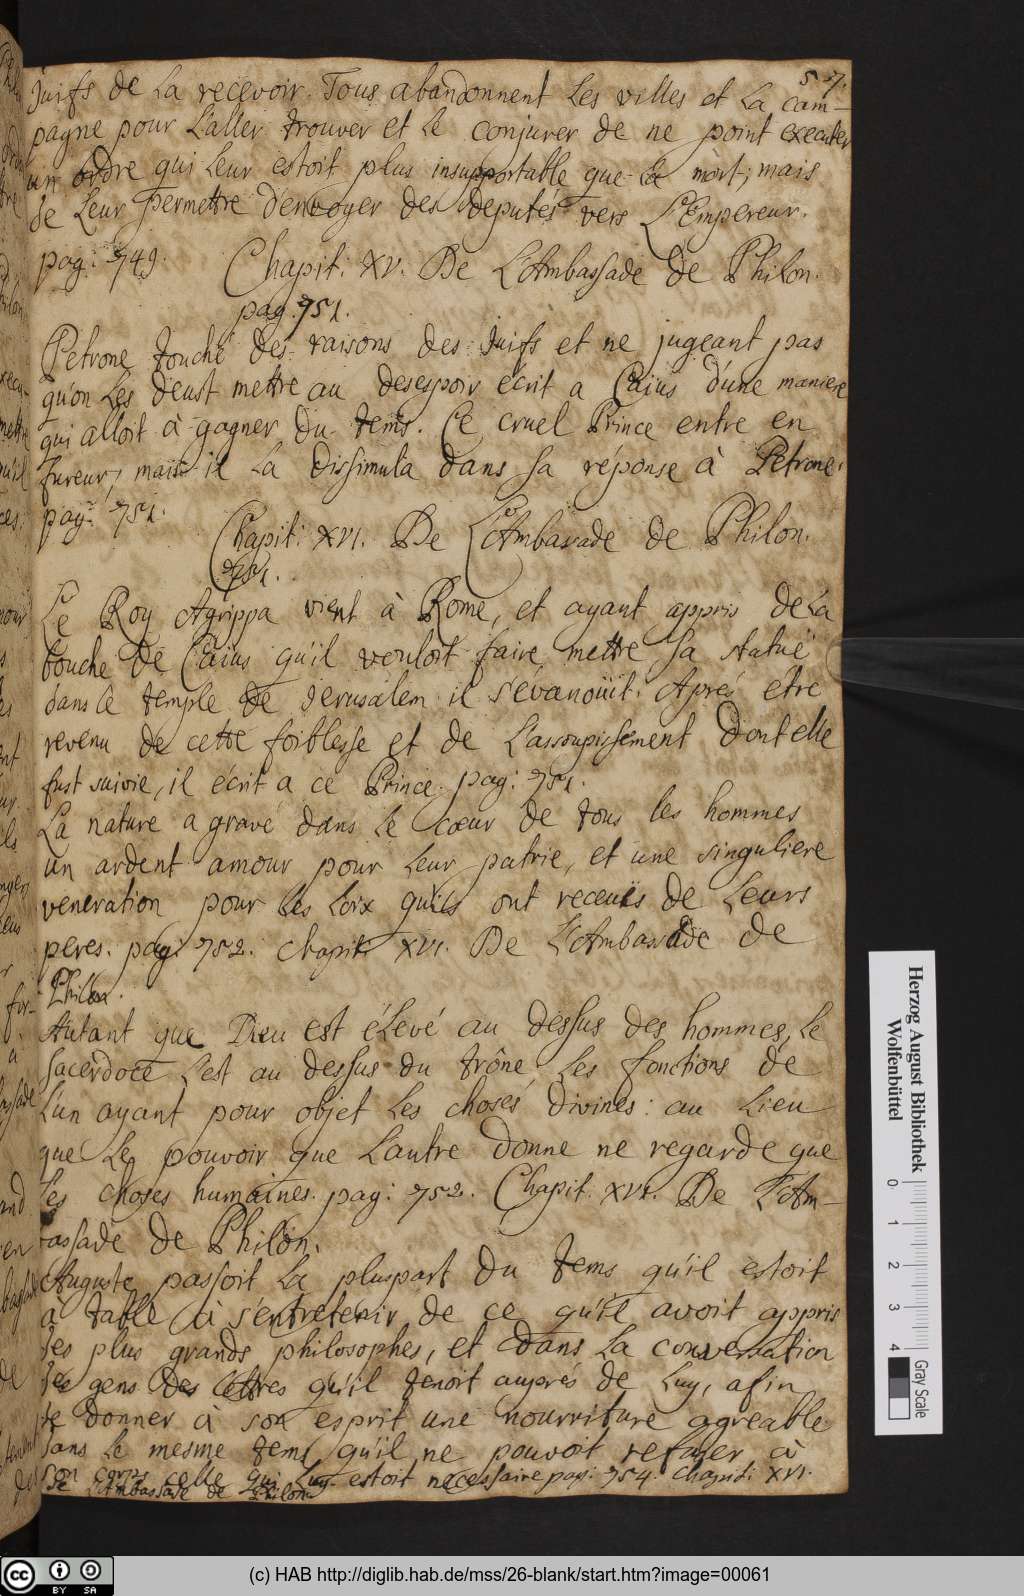 57.
Juifs de la recevoir. Tous abandonnent les villes et la cam-
pagne pour l'aller trouver et le conjurer de ne point executer
un ordre qui leur estoit plus insupportable que la mort; mais
de leur permettre d'envoyer des deputés vers L'Empereur.
pag: 749. Chapit: XV. De L'Ambassade de Philon.
pag. 751.
Petrone touché des raisons des Juifs et ne jugeant pas
qu'on les deust mettre au desespoir écrit a Caius d'une maniere
qui alloit à gagner du tems. Ce cruel Prince entre en
fureur; mais il la dissimula dans sa réponse à Petrone.
pag: 751. Chapit: XVI. De L'Ambassade de Philon.
751.
Le Roy Agrippa vient à Rome, et ayant appris de la
bouche de Caius qu'il vouloit faire mettre sa statuë
dans le temple de Jerusalem il s'évanoüit. Aprés etre
revenu de cette foiblesse et de l'assoupissement dont elle
fust suivie, il écrit a ce Prince. pag: 751.
La nature a gravé dans le cœur de tous les hommes
un ardent amour pour leur patrie, et une singuliere
veneration pour les loix qu'ils ont receuës de leurs
peres. pag: 752. chapit: XVI. De L'Ambassade de
Philon.
Autant que Dieu est élevé au dessus des hommes, le
sacerdoce l'est au dessus du trône, les fonctions de
l'un ayant pour objet les choses divines: au lieu
que le pouvoir que l'autre donne ne regarde que
les choses humaines. pag: 752. Chapit. XVI. De L'Am-
bassade de Philon.
Auguste passoit la pluspart du tems qu'il estoit
à table à s'entretenir de ce qu'il avoit appris
des plus grands philosophes, et dans la conversation
des gens des lettres qu'il tenoit auprés de luy, afin
de donner a son esprit une nourriture agreable
dans le mesme tems qu'il ne pouvoit refuser à
son corps celle qui luy estoit necessaire pag: 754. chapit: XVI.
De L'Ambassade de Philon.
Herzog August Bibliothek
Wolfenbüttel
0 1 2 3 4
Gray Scale
cc BY SA
(c) HAB http://diglib.hab.de/mss/26-blank/start.htm?image=00061